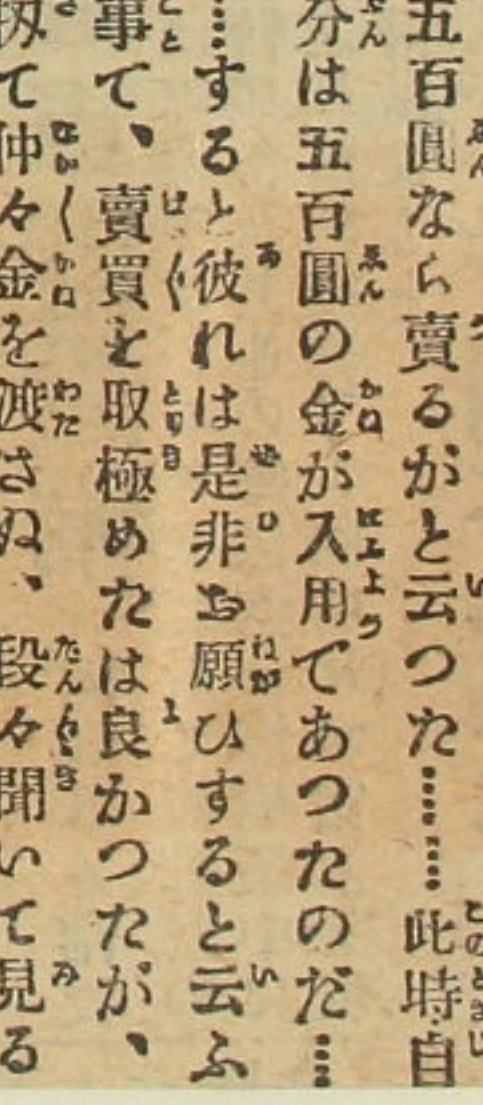 五百圓なら賣るがと云つた……此時自
分は五百圓の金が入用であつたのだ…
…すると彼れは是非お願ひすると云ふ
事で、賣買を取極めたは良かつたが、
扨て仲々金を渡さぬ、段々聞いて見る